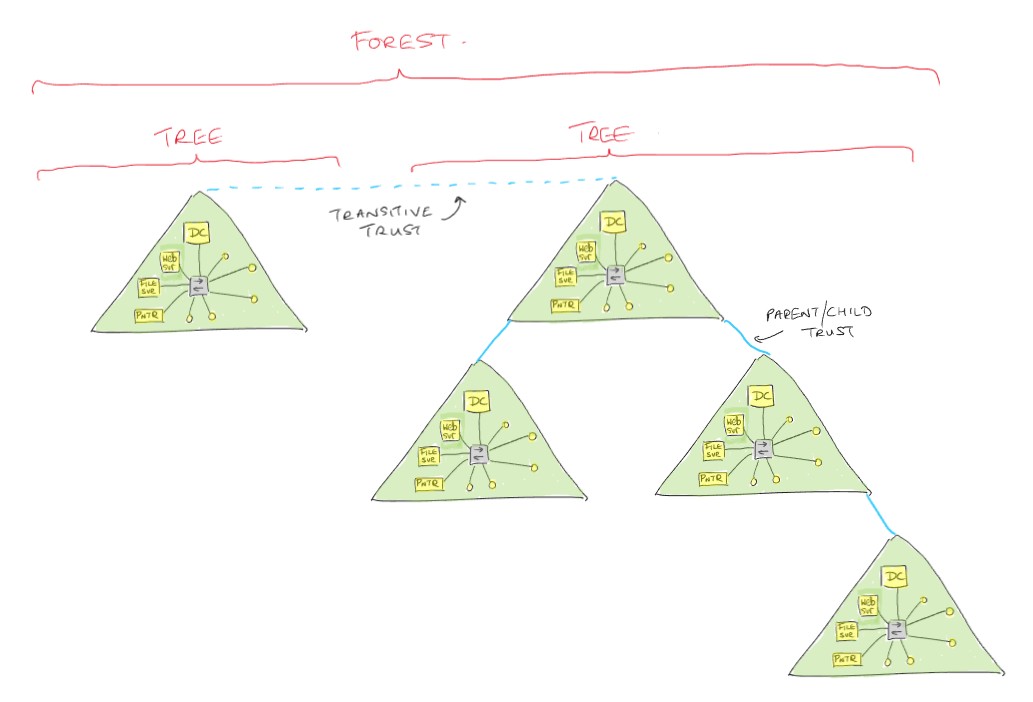 FOREST.
TREE
TREE
TRANSITIVE
TRUST
DC
Web
svr
FILE
SVR
PNTR
DC
Web
svr
FILE
SVR
PNTR
PARENT/CHILD
TRUST
DC
Web
svr
FILE
SVR
PNTR
DC
Web
svr
FILE
SVR
PNTR
DC
Web
svr
FILE
SVR
PNTR